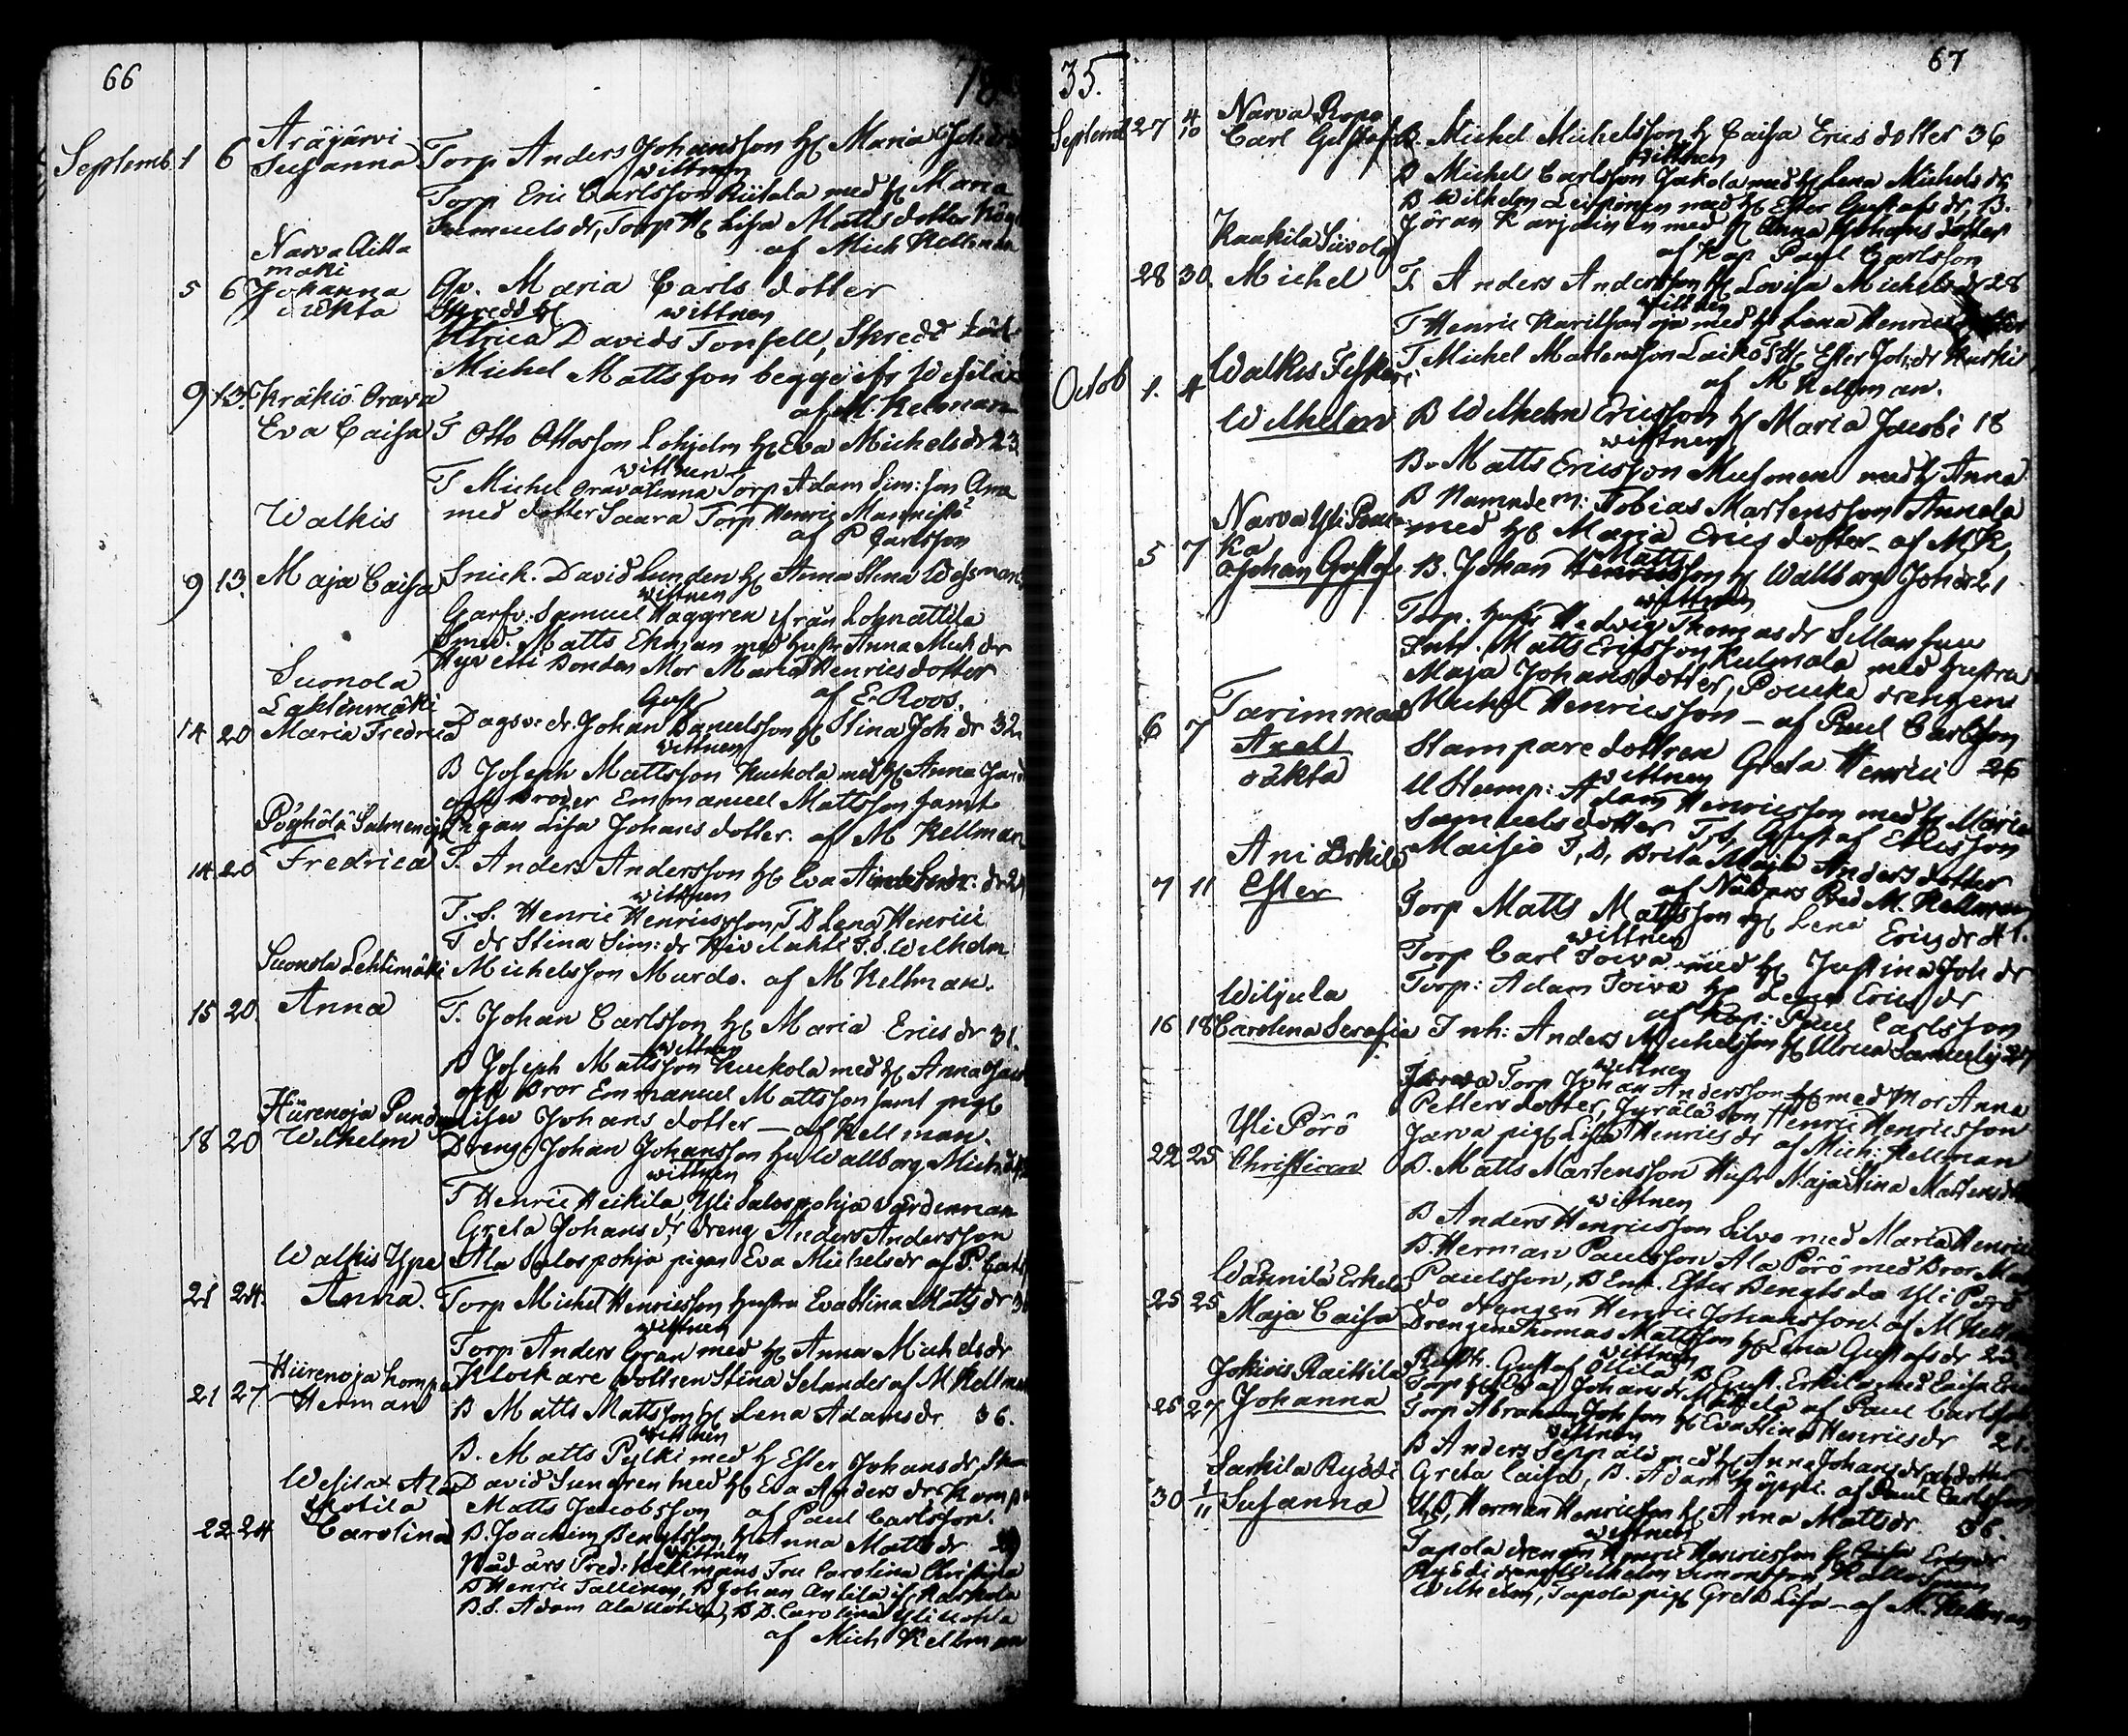 66
18
Septemb. 1 6 Aräjärvi
Susanna Torp Anders Johansson H Maria Joh
wittnen
Torp Eric Carlsson Riitala med H Maria
Samuels dr, Torp H Lisa Matts dotter
af Mich Kellman
Narva Aitta
maki
5 6 Johanna Qv. Maria Carls dotter
oäkta Skredd H wittnen
Ulrica Davids Tonsell, Skredd
Michel Mattsson begge ifr Wesila
af M. Kelman
9 13. Kräkiö Orava
Eva Caisa T Otto Ottosson Lohjelm H Eva Michels dr 23
wittnen
T Michel Oravalinna Torp Adam Sim: son
med dotter Saara Torp Henric Mannistö
af P Carlsson
Walkis
9 13. Maja Caisa Snick. David Lunden H Anna Stina
wittnen
Garfv. Samuel Haggren ifrån Lohnattila
Smed. Matts Ekman med hustr Anna Mich dr
Hyvetti Bondens Mor Maria Henrics dotter
af E. Roos.
Suonola
Lahtinmäki
14 20 Maria Fredrica Dagsv. dr. Johan Danielsson H Stina Joh dr 32
wittnen
B Joseph Mattsson Kuckola med H Anna
och Broder Emmanuel Mattsson samt
Pigan Lisa Johans dotter. af M Kellman
Pöyhölä Salmenoja
14 20 Fredrica T. Anders Andersson H Eva
wittnen
T. S. Henric Henricsson, T D Lena Henrici
T dr Stina Sim: dr T.S. Wilhelm
Michelsson Murdo. af M Kellman.
Suonola Lehtimäki
15 20. Anna T. Johan Carlsson H Maria Erics dr 31.
wittnen
B Joseph Mattsson Kuckola med H Anna
och Bror Emmanuel Mattsson samt pig
Lisa Johans dotter — af Kellman.
Hiirenoja Pundu
18 20 Wilhelm Dreng. Johan Johansson Hu Wallborg Mich
wittnen
T Henric Heikila, Yli Salospohja värdennan
Greta Johans dr, dreng Anders Andersson
Ala Salospohja pigan Eva Michelsdr af P. Carls
Walkis Ype
21 24. Anna. Torp Michel Henricsson hustru Eva Stina Matts dr
wittnen
Torp Anders Gran med H Anna Michels dr
Klockare dottren Stina Selander af M Kellman
Hiirenoja kompa
21 27 Herman B Matts Mattsson H Lena Adams dr 36.
wittnen
B. Matts Pylki med H Ester Johans dr,
David Sungren med H Eva Anders dr
Matts Jacobsson af Paul Carlsson.
Wesilax Ala
Uotila
22 24 Carolina B. Joachim Bengtsson, H Anna Matts dr
wittnen
Nåd års Pred: Kellmans Fru Carolina Christina
B Henric Tallinen, B Johan Antila if. Karkola
B.S. Adam Ala Uotila, B D. Carolina Yli Uotila
af Mich Kellman
35.
67
Septemb 27 4/10 Narva Ropo
Carl Gustaf B. Michel Michelsson H Caisa Erics dotter 36
wittnen
B Michel Carlsson Jakola med H Lena Michels dr,
B Wilhelm Leiponen med H Ester Gustafs dr, B.
Jöran Karjainen med H Anna Johans dotter
af Kap Paul Carlsson
Kaakila Siivola
28 30. Michel T. Anders Andersson H Lovisa Michels dr 28
wittnen
T Henric Karilsanoja med H Lena Henrics
T Michel Martensson Laiko T H Ester Joh: dr Kurki
af M Kellman.
Octob 1. 4 Walkis Fiskari
Wilhelm B Wilhelm Ericsson H Maria Jacobi 18
wittnen
B. Matts Ericsson Musonen med H Anna
B Namndem: Tobias Martensson Annela
med H Maria Erics dotter. af M K,
Narva Yli Pouc
ka
5 7 Johan Gustaf B. Johan Mattsson H Wallborg Joh dr 21
wittnen
Torp. hustr Hedvig Thomas dr Sillansuu
Inh. Matts Ericsson Kulmala med hustru
Maja Johans dotter, Poucka drengen
Michel Henricsson — af Paul Carlsson
Tarimmaa
6 7 Axell Stampare dottren Greta Henrici 26
oäkta wittnen
U Stamp: Adam Henricsson med H Maria
Samuels dotter T, S, Gustaf Elisson
Maisio T, D, Brita Maja Anders dotter
af Nåd:års Pred M. Kellman
Ani Erkilä
7 11 Ester Torp Matts Mattsson H Lena Erics dr 41.
wittnen
Torp Carl Toiva med H Justina Joh dr
Torp: Adam Toiva H Lena Erics dr
af Kap: Paul Carlsson
Wiljula
16 18 Carolina Serafia Inh: Anders Michelsson H Ulrica Samuels 27
wittnen
Järva Torp Johan Andersson H med Mor Anna
Petters dotter, Jyrälä son Henric Henricsson
Jarva pig Lisa Henrics dr af Mich: Kellman
Yli Pörö
22 25 Christian B. Matts Martensson Hustr Maja Stina Mattens dr
wittnen
B Anders Henricsson Silvo med Maria Henrics
B. Herman Paulsson Ala Pörö med Bror
Paulsson, B Enk. Ester Bengtsdr Yli Pörö
do drengen Henric Johansson af M Kellm
Wännilä Erkela
25 25 Maja Caisa Drengen Thomas Mattsson H Lena Gustafs dr 25
wittnen
Rusth. Gustaf Ollila,
Torp Johans dr af Paul Carlsson
Jokiois Raittila
25 27 Johanna Torp Abraham Joh son H Eva Stina Henrics dr 21.
wittnen
B Anders Seppälä med H Anna Johans dr, dotter
Greta Caisa, B. Adam Höyppi. af Paul Carlsson
Sarkila Rysöi
30 1/11 Susanna Herman Henricsson H Anna Matts dr 36.
wittnen
Tapola drengen Henric Henricsson
Rysöi dreng Wilhelm Simonsson,
Wilhelm, Tapola pig Greta Lisa — af M. Kellman